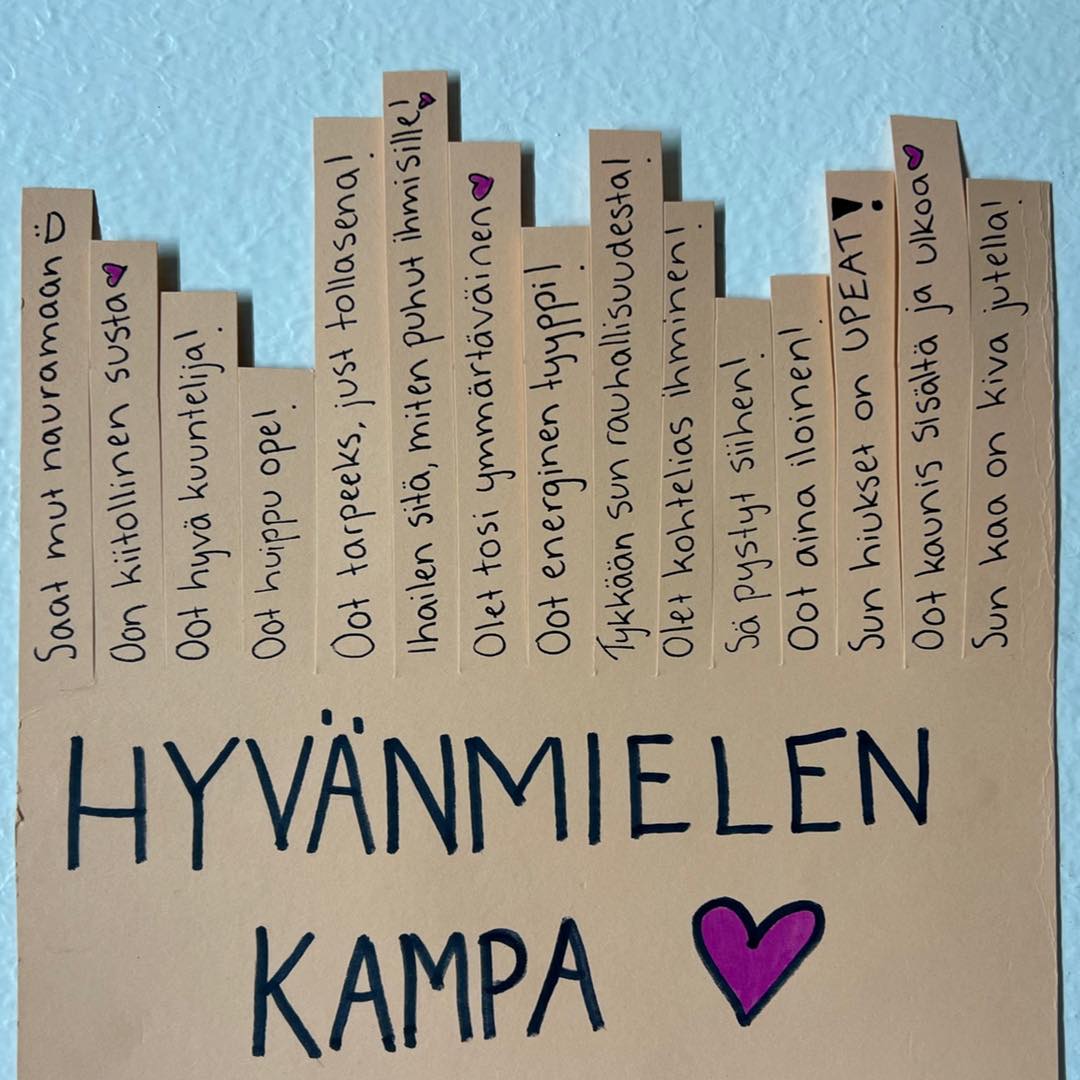 Saat mut nauramaan
Oon kiitollinen susta
Oot hyvä kuuntelija!
Oot huippu ope!
Oot tarpeeks, just tollasena!
Ihailen sitä, miten puhut ihmisille!
Olet tosi ymmärtäväinen
Oot energinen tyyppi!
Tykkään sun rauhallisuudesta!
Olet kohtelias ihminen!
Sä pystyt siihen!
Oot aina iloinen!
Sun hiukset on UPEAT!
Oot kaunis sisältä ja ulkoa
Sun kaa on kiva jutella!
HYVÄNMIELEN
KAMPA